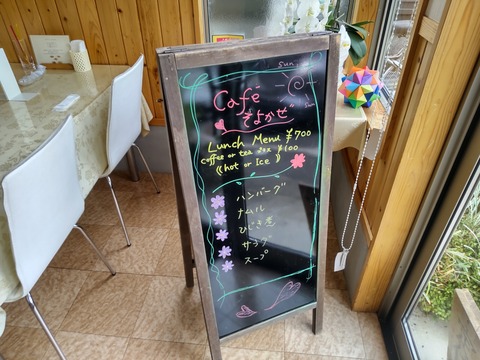 sun.
Café
そよかぜ
sun
Lunch Menu ¥700
coffee or tea tax ¥100
(hot or Ice)
ハンバーグ
ナムル
ひじき煮
サラダ
スープ